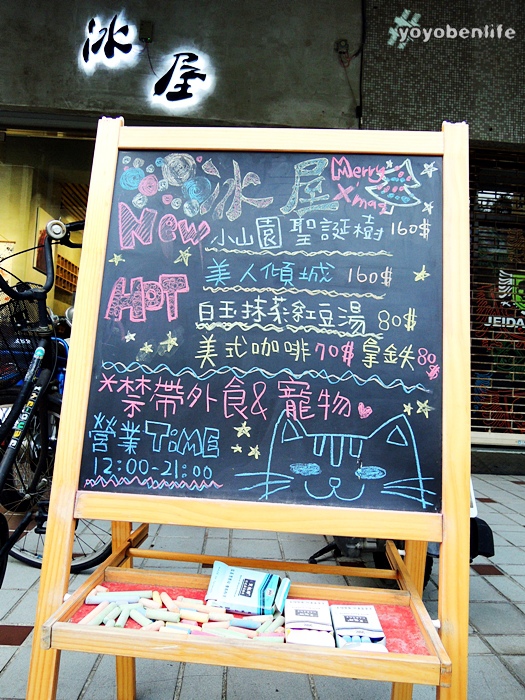 yoyobenlife
冰屋
冰屋
Merry
X'mas
New 小山園 聖誕樹 160$
HOT
美人傾城 160$
白玉抹茶紅豆湯 80$
美式咖啡 70$ 拿鉄 80$
※禁帶外食& 寵物
營業TiME
12:00-21:00
JEIDA